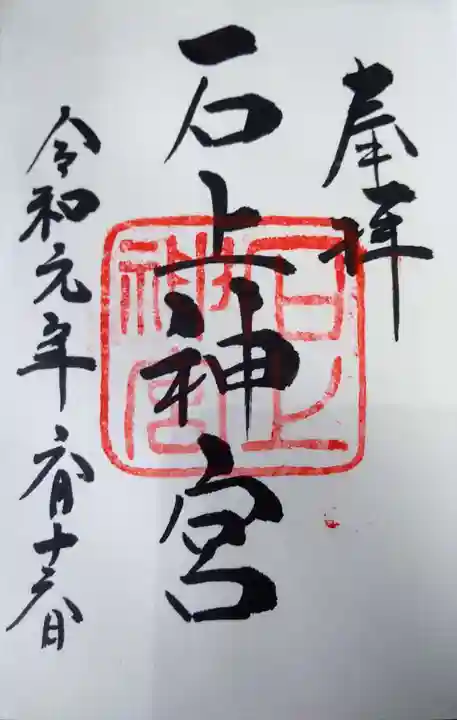 奉拝
石上神宮
石上
神宮
令和元年 六月十六日